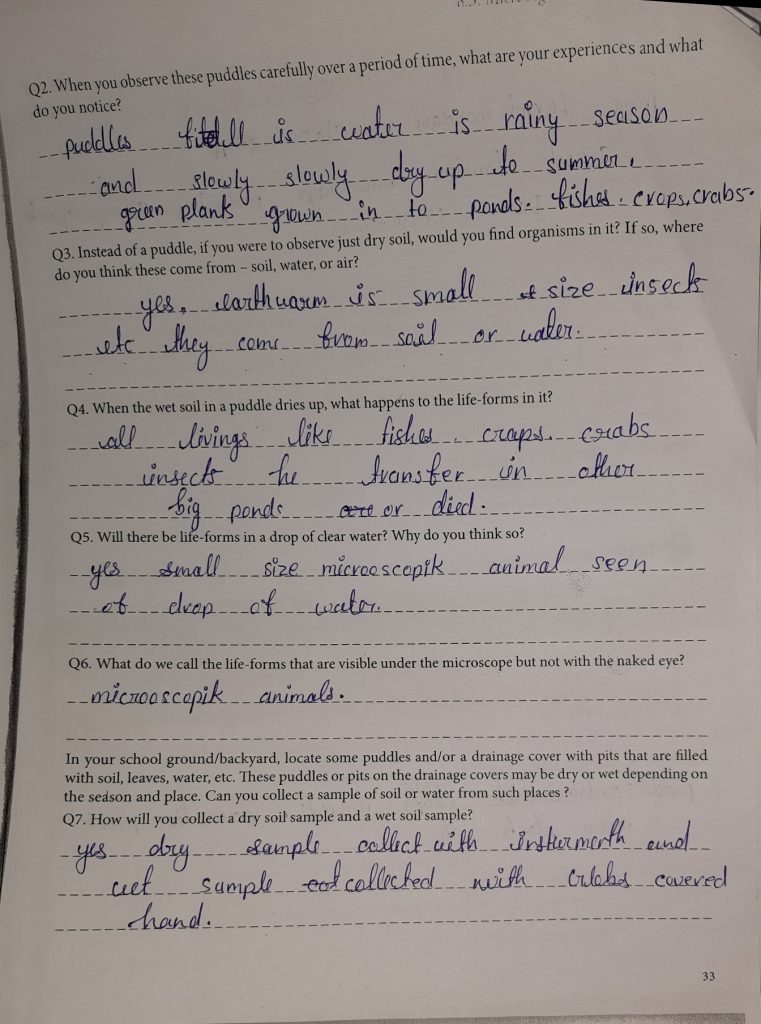 Q2. When you observe these puddles carefully over a period of time, what are your experiences and what
do you notice?
puddles is water is rainy season
and slowly slowly dry up to summer.
green plank grown in to ponds. fishes. crops, crabs.
Q3. Instead of a puddle, if you were to observe just dry soil, would you find organisms in it? If so, where
do you think these come from – soil, water, or air?
yes, earthwarm is small size insects
etc they come from soil or water.
Q4. When the wet soil in a puddle dries up, what happens to the life-forms in it?
all livings like fishes. craps. crabs
insects he transfer in other
big ponds or died.
Q5. Will there be life-forms in a drop of clear water? Why do you think so?
yes small size microoscopik animal seen
of drop of water.
Q6. What do we call the life-forms that are visible under the microscope but not with the naked eye?
microoscopik animals.
In your school ground/backyard, locate some puddles and/or a drainage cover with pits that are filled
with soil, leaves, water, etc. These puddles or pits on the drainage covers may be dry or wet depending on
the season and place. Can you collect a sample of soil or water from such places ?
Q7. How will you collect a dry soil sample and a wet soil sample?
yes dry sample collect with and
wet sample collected with covered
hand.
33